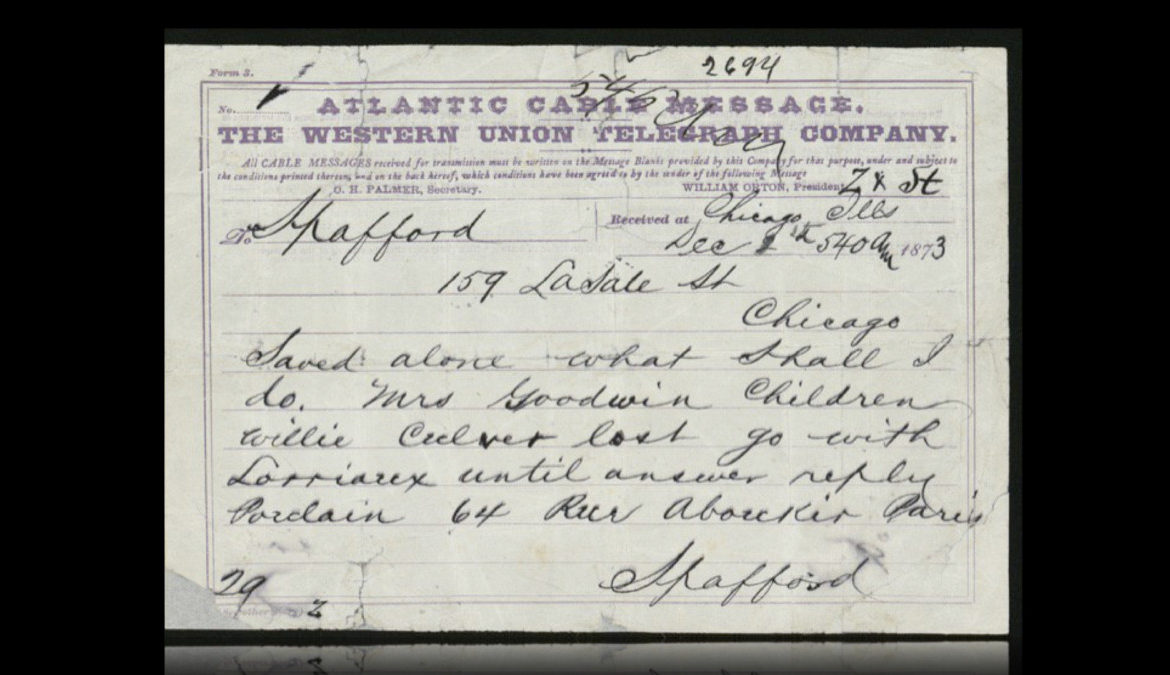 2694
Form 3.
No.
ATLANTIC CABLE MESSAGE.
THE WESTERN UNION TELEGRAPH COMPANY.
All CABLE MESSAGES received for transmission must be written on the Message Blanks provided by this Company for that purpose, under and subject to
the conditions printed thereon, and on the back hereof, which conditions have been agreed to by the sender of the following Message
O. H. PALMER, Secretary. WILLIAM ORTON, President
Z x St
To Spafford
Received at Chicago Ills
Dec 540 am 1873
159 LaSale St
Chicago
Saved alone what shall I
do. Mrs Goodwin Children
Willie Culver lost go with
Lorriaux until answer reply
Porclain 64 Rue Aboukir Paris
Spafford
29
Z